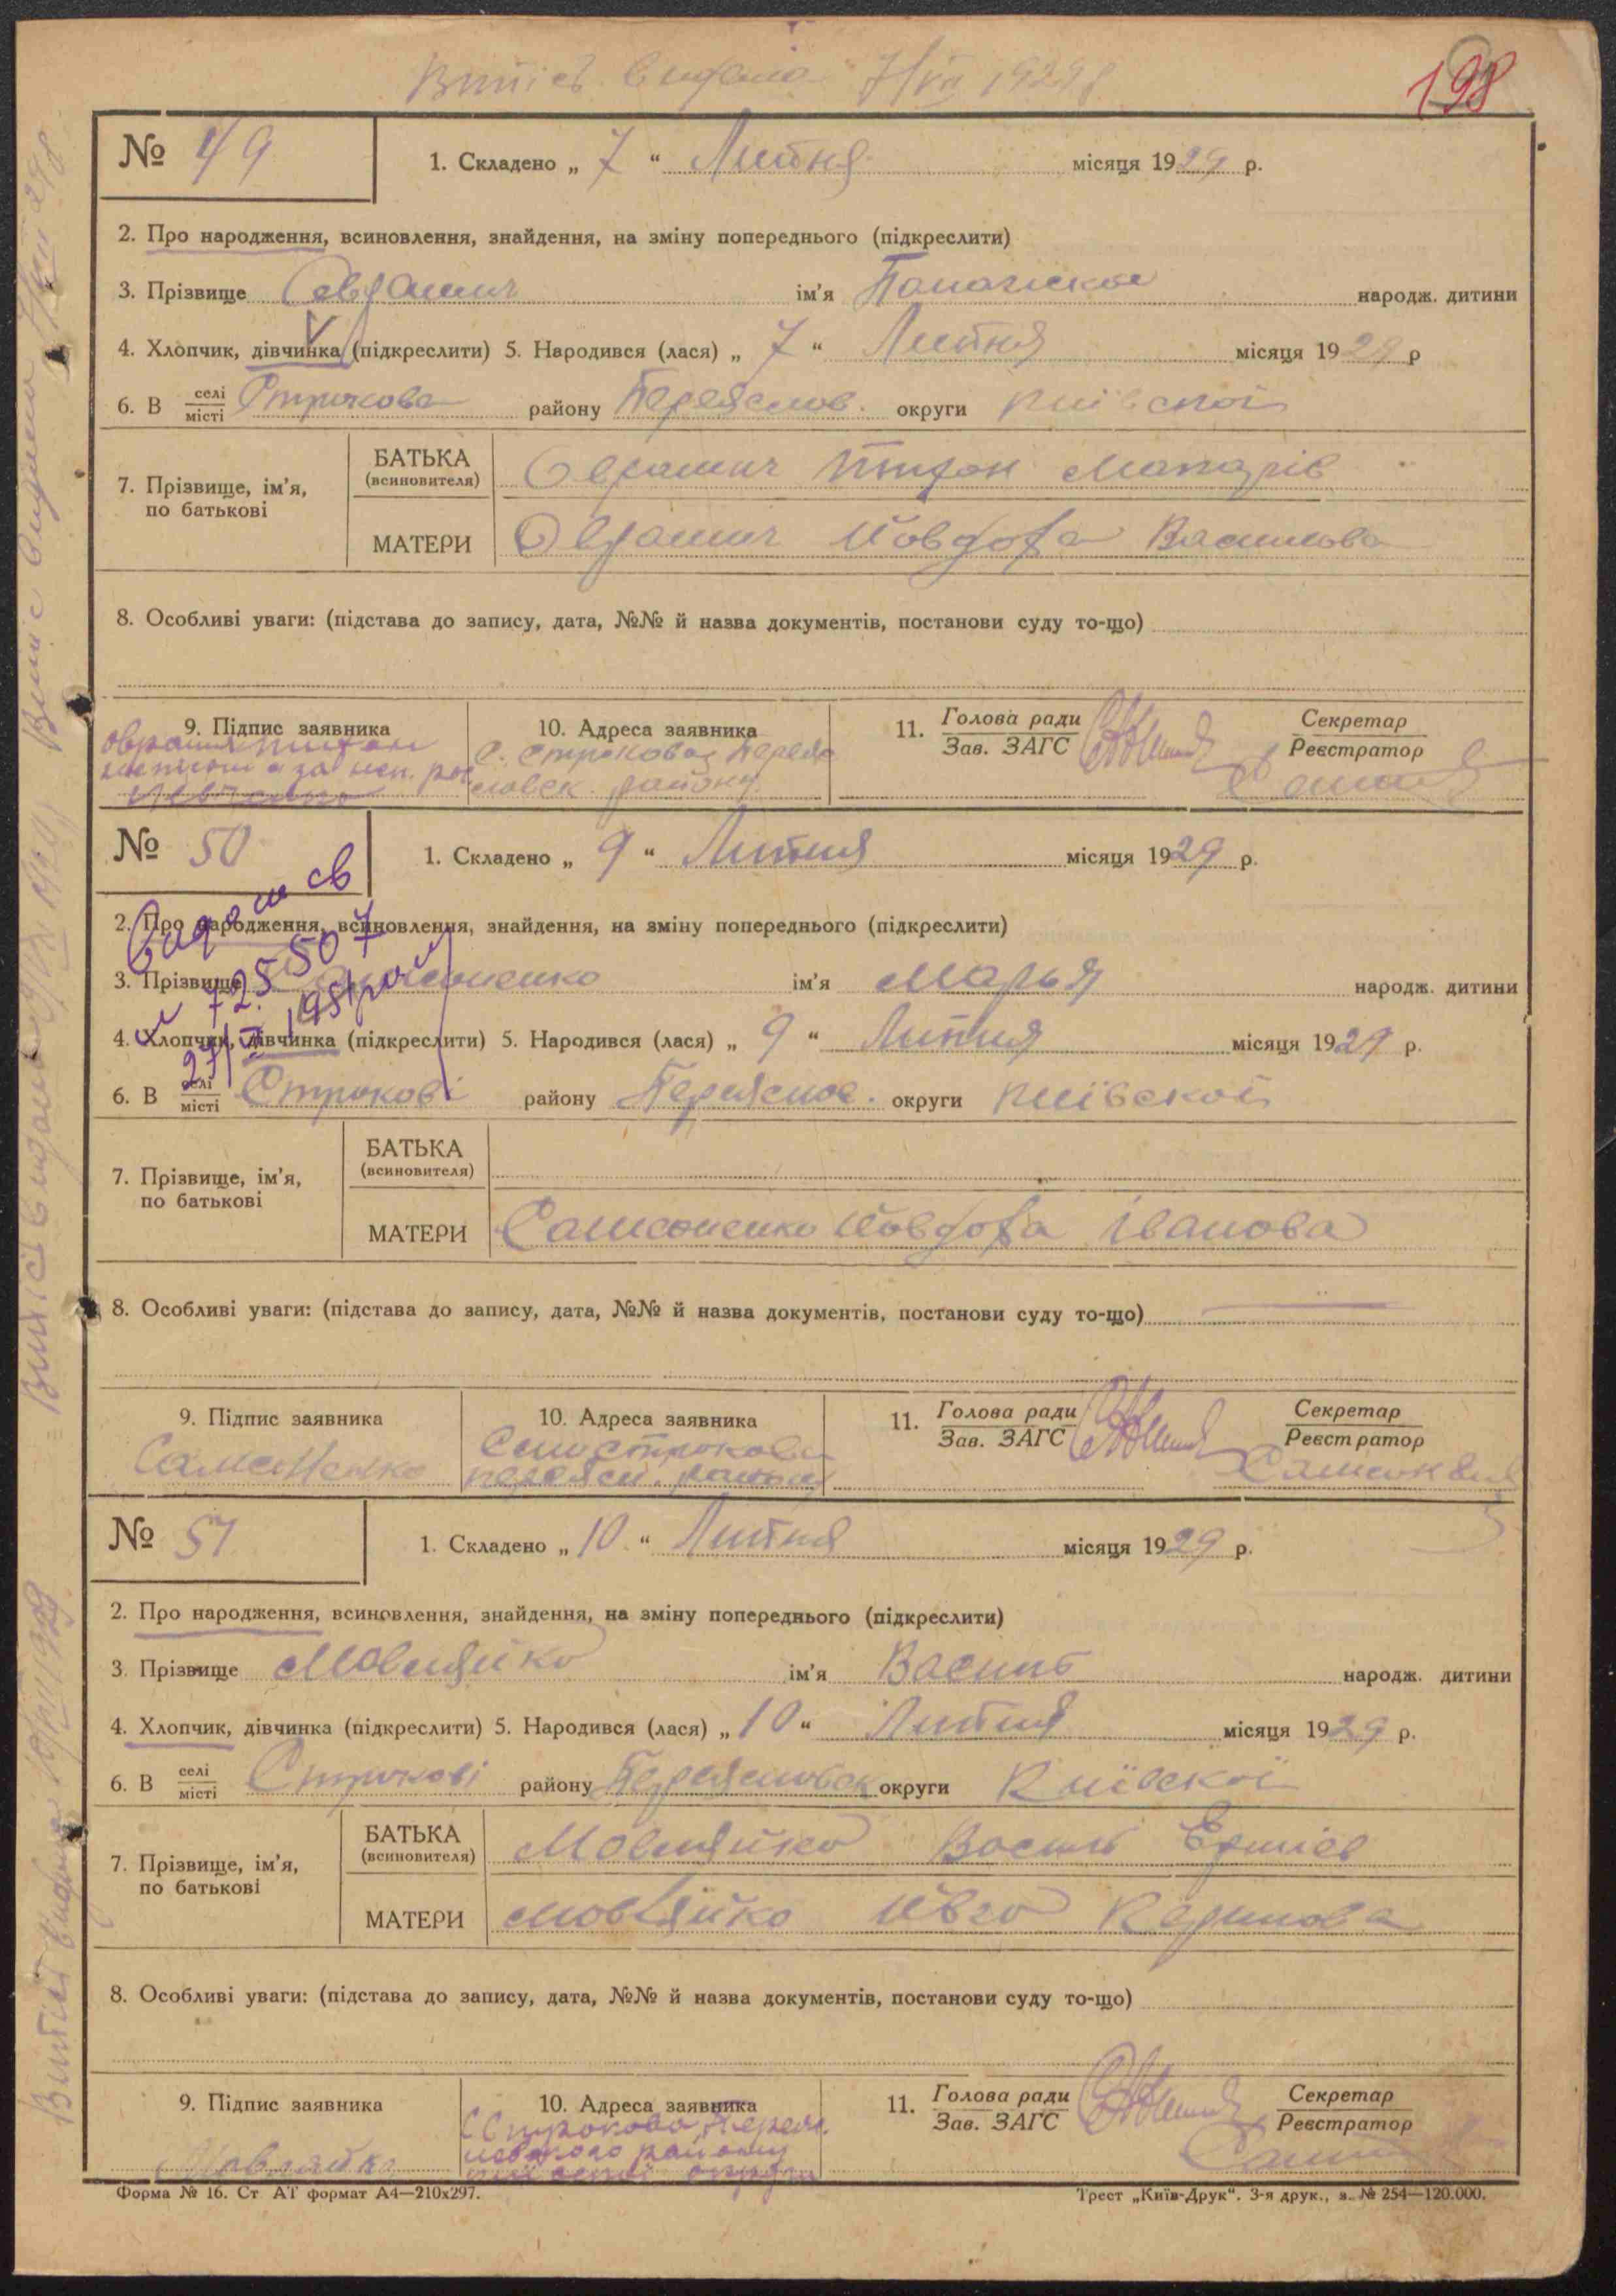 Витісь видана 7/VII 1929 р
198
№ 49
1. Складено „ 7 “ Липня місяця 1929 р.
2. Про народження, всиновлення, знайдення, на зміну попереднього (підкреслити)
3. Прізвище Оврашич ім'я народж. дитини
4. Хлопчик, дівчинка (підкреслити) 5. Народився (лася) „ 7 “ Липня місяця 1929 р
6. В селі/місті Строкова району Переяслов. округи Київскої
7. Прізвище, ім'я, по батькові
БАТЬКА (всиновителя) Оврашич Макарів
МАТЕРИ Оврашич Йовдоха Василова
8. Особливі уваги: (підстава до запису, дата, №№ й назва документів, постанови суду то-що)
9. Підпис заявника
10. Адреса заявника
с. Строкова Перея
словск. району
11. Голова ради / Зав. ЗАГС
Секретар / Реєстратор
№ 50
1. Складено „ 9 “ Липня місяця 1929 р.
2. Про народження, всиновлення, знайдення, на зміну попереднього (підкреслити)
3. Прізвище Самсоненко ім'я Марья народж. дитини
4. Хлопчик, дівчинка (підкреслити) 5. Народився (лася) „ 9 “ Липня місяця 1929 р.
6. В селі/місті Строкові району Переяслов. округи Київской
7. Прізвище, ім'я, по батькові
БАТЬКА (всиновителя)
МАТЕРИ Самсоненко Йовдоха Іванова
8. Особливі уваги: (підстава до запису, дата, №№ й назва документів, постанови суду то-що)
9. Підпис заявника
Самсоненко
10. Адреса заявника
Село Строкова
переясл. району
11. Голова ради / Зав. ЗАГС
Секретар / Реєстратор
№ 51
1. Складено „ 10 “ Липня місяця 1929 р.
2. Про народження, всиновлення, знайдення, на зміну попереднього (підкреслити)
3. Прізвище Мовляйко ім'я Василь народж. дитини
4. Хлопчик, дівчинка (підкреслити) 5. Народився (лася) „ 10 “ Липня місяця 1929 р.
6. В селі/місті Строкові району Переясловск округи Київскої
7. Прізвище, ім'я, по батькові
БАТЬКА (всиновителя) Мовляйко Василь
МАТЕРИ Мовляйко Ївга
8. Особливі уваги: (підстава до запису, дата, №№ й назва документів, постанови суду то-що)
9. Підпис заявника
Мовляйко
10. Адреса заявника
С Строкова, Перея
словского району
київскої округи
11. Голова ради / Зав. ЗАГС
Секретар / Реєстратор
Форма № 16. Ст АТ формат А4—210x297.
Трест „Київ-Друк“. 3-я друк., з. № 254—120.000.